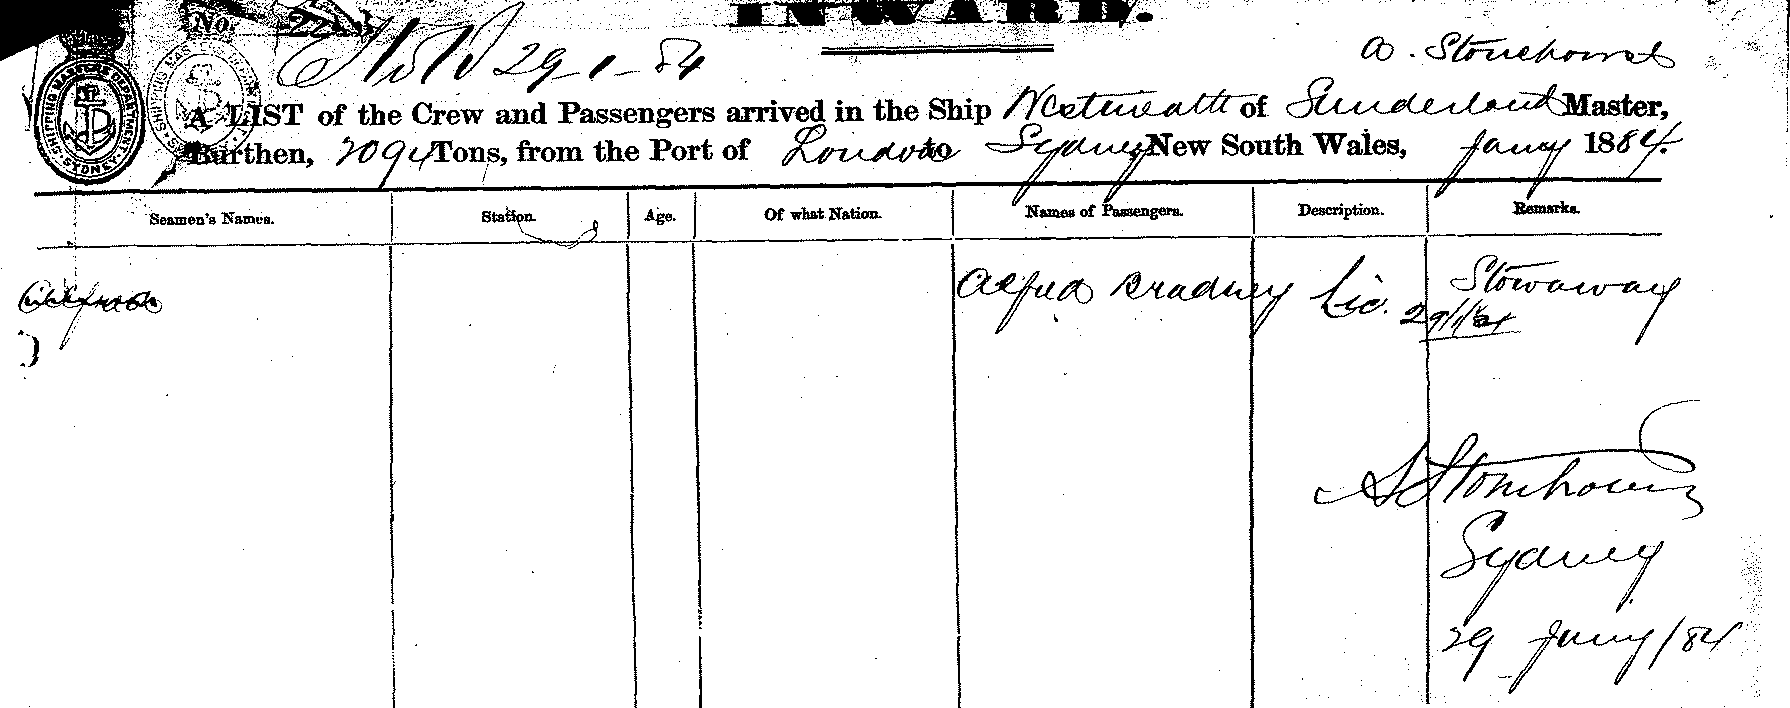 INWARD.
No. 22
29-1-84
A. Stonehouse
A LIST of the Crew and Passengers arrived in the Ship of Sunderland Master,
Burthen, 2094 Tons, from the Port of London to Sydney New South Wales, Jany 1884.
Seamen's Names. Station. Age. Of what Nation. Names of Passengers. Description. Remarks.
Alfred Bradney Stowaway
29/1/84
A Stonehouse
Sydney
29 Jany/84
SHIPPING MASTERS DEPARTMENT